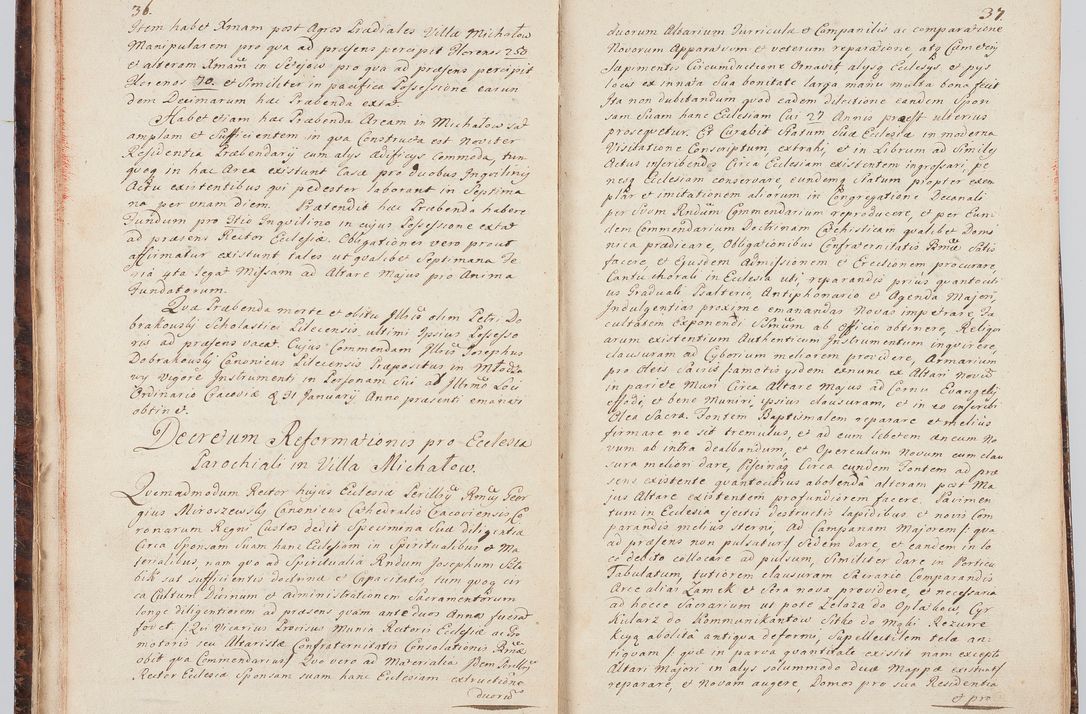 36.
Item habet Xmam post Agros Prædiales Villa Michałow
Manipularem pro qua ad præsens percipit Florenos 253
et alteram Xmam in Sctejow pro qua ad præsens percipit
Florenos 70. et Similiter in pacifica Possessione earun
dem Decimarum hæc Præbenda extat.
Habet etiam hæc Præbenda Aream in Michałow sat
amplam et Sufficientem in qua Constructa est Noviter
Residentia Præbendarij cum alys ædificys Commoda, tum
quoq in hac Area existunt Casæ pro duobus Inqvilinis
Actu existentibus qui pedester laborant in Septima
na per unam diem. Prætendit hæc Præbenda habere
Fundum pro 3tio Inqvilino in cujus Possessione extat
ad præsens Rector Ecclesiæ. Obligationes vero prout
affirmatur existunt tales ut qualibet Septimana Fe
ria 4ta legat Missam ad Altare Majus pro Anima
Fundatorum.
Quæ Præbenda morte et obitu Illris olim Petri Do
brakowsky Scholastici Pilecensis ultimi Ipsius Possesso
ris ad præsens vacat. Cujus Commendam Illris Josephus
Dobrakowsky Canonicus Pilecensis Præpositus in Młodzo
wy vigore Instrumenti in Personam Sui ab Illrmo Loci
Ordinario Cracoviæ d 31 January Anno præsenti emanati
obtinet.
Decretum Reformationis pro Ecclesia
Parochiali in Villa Michałow.
Quemadmodum Rector hujus Ecclesiæ Perillris Rmus Geor
gius Miroszewsky Canonicus Cathedralis Cracoviensis C
ronarum Regni Custos dedit Specimina Suæ diligentia
Circa Sponsam Suam hanc Ecclesiam in Spiritualibus et Ma
terialibus, nam quo ad Spiritualia Rndum Josephum Sole
bik sat sufficientis doctrinæ et Capacitatis, tum quoq cir
ca Cultum Divinum et Administrationem Sacramentorum
longe diligentiorem ad præsens quam ante duos Annos fuerat
fovet /: Qui Vicarius Præcisus Munia Rectoris Ecclesiæ ac Pro
motoris seu Altaristæ Confraternitatis Consolationis Bmæ
obit qua Commendarius:/ Quo vero ad Materialia Idem Perillris
Rector Ecclesiæ Sponsam suam hanc Ecclesiam extructione
duorum
37.
duorum Albarium Turricula et Campanilis ac comparatione
Novorum Apparatuum et veterum reparatione atq Cæmeterij
Sapimentis Circumductione Ornavit, alysq Ecclesys, et pys
locis ex innata Sua bonitate larga manu multa bona fecit
Ita non dubitandum quod eadem discretione eandem Spon
sam Suam hanc Ecclesiam Cui 27 Annis præest ulterius
prosequetur. Et Curabit Statum Suæ Ecclesiæ in moderna
Visitatione Conscriptum extrahi, et in Librum ad Similes
Actus inscribendos Circa Ecclesiam existentem ingrossari, pe
nesq Ecclesiam conservare, eundemq statum propter exem
plar et imitationem aliorum in Congregatione Decanali
per Suum Rndum Commendarium reproducere, et per Eun
dem Commendarium Doctrinam Cathechisticam qualibet Domi
nica prædicare, Obligationibus Confraternitatis Bmæ Satis
facere, et Ejusdem Admissionem et Erectionem procurare,
Cantu chorali in Ecclesia uti, reparandis prius quantocius
us Graduali Psalterio, Antiphonario et Agenda Majori,
Indulgentias proxime emanandas Novas impetrare, Fa
cultatem Exponendi SSmum ab Officio obtinere, Religvi
arum existentium Authenticum Instrumentum inqvirere,
clausuram ad Cyborium meliorem providere, Armarium
pro Oleis Sacris semotis ysdem exnunc ex Altari novum
in pariete Muri Circa Altare Majus ad Cornu Evangely
effodi, et bene Muniri, ipsius clausuram, et in eo inscribi
Olea Sacra. Fontem Baptismalem reparare et melius
firmare ne sit tremulus, et ad eum lebetem æneum No
vum ab intra dealbandum, et Operculum Novum cum clau
sura meliori dare, Piscinas Circa eundem Fontem ad præ
sens existente quantocitius abolenda alteram post Ma
jus Altare existentem profundiorem facere. Pavimen
tum in Ecclesia ejectis destructis lapidibus et novis Com
parandis melius sterni, Ad Campanam Majorem /: qua
ad præsens non pulsatur:/ Sedem dare, et eandem in lo
co debito collocare ad pulsum, Similiter dare in Porticu
Tabulatum, tutiorem clausuram Sacrario Comparandis
Arce alias Zamek et Sera nova providere, et necessaria
ad hocce Sacrarium ut pote Zelaza do Opłatkow, Cyr
kularz do Kommunikantow Sitko do Mąki Rezuire
Krzyq abolita antiqua deformi, Supellectilem telæ an=
tiquam /: quæ in parva quantitate existit nam excepto
Altari Majori in alys solummodo duæ Mappæ existunt:/
reparare, et Novam augere, Domos pro sua Residentia
et pro